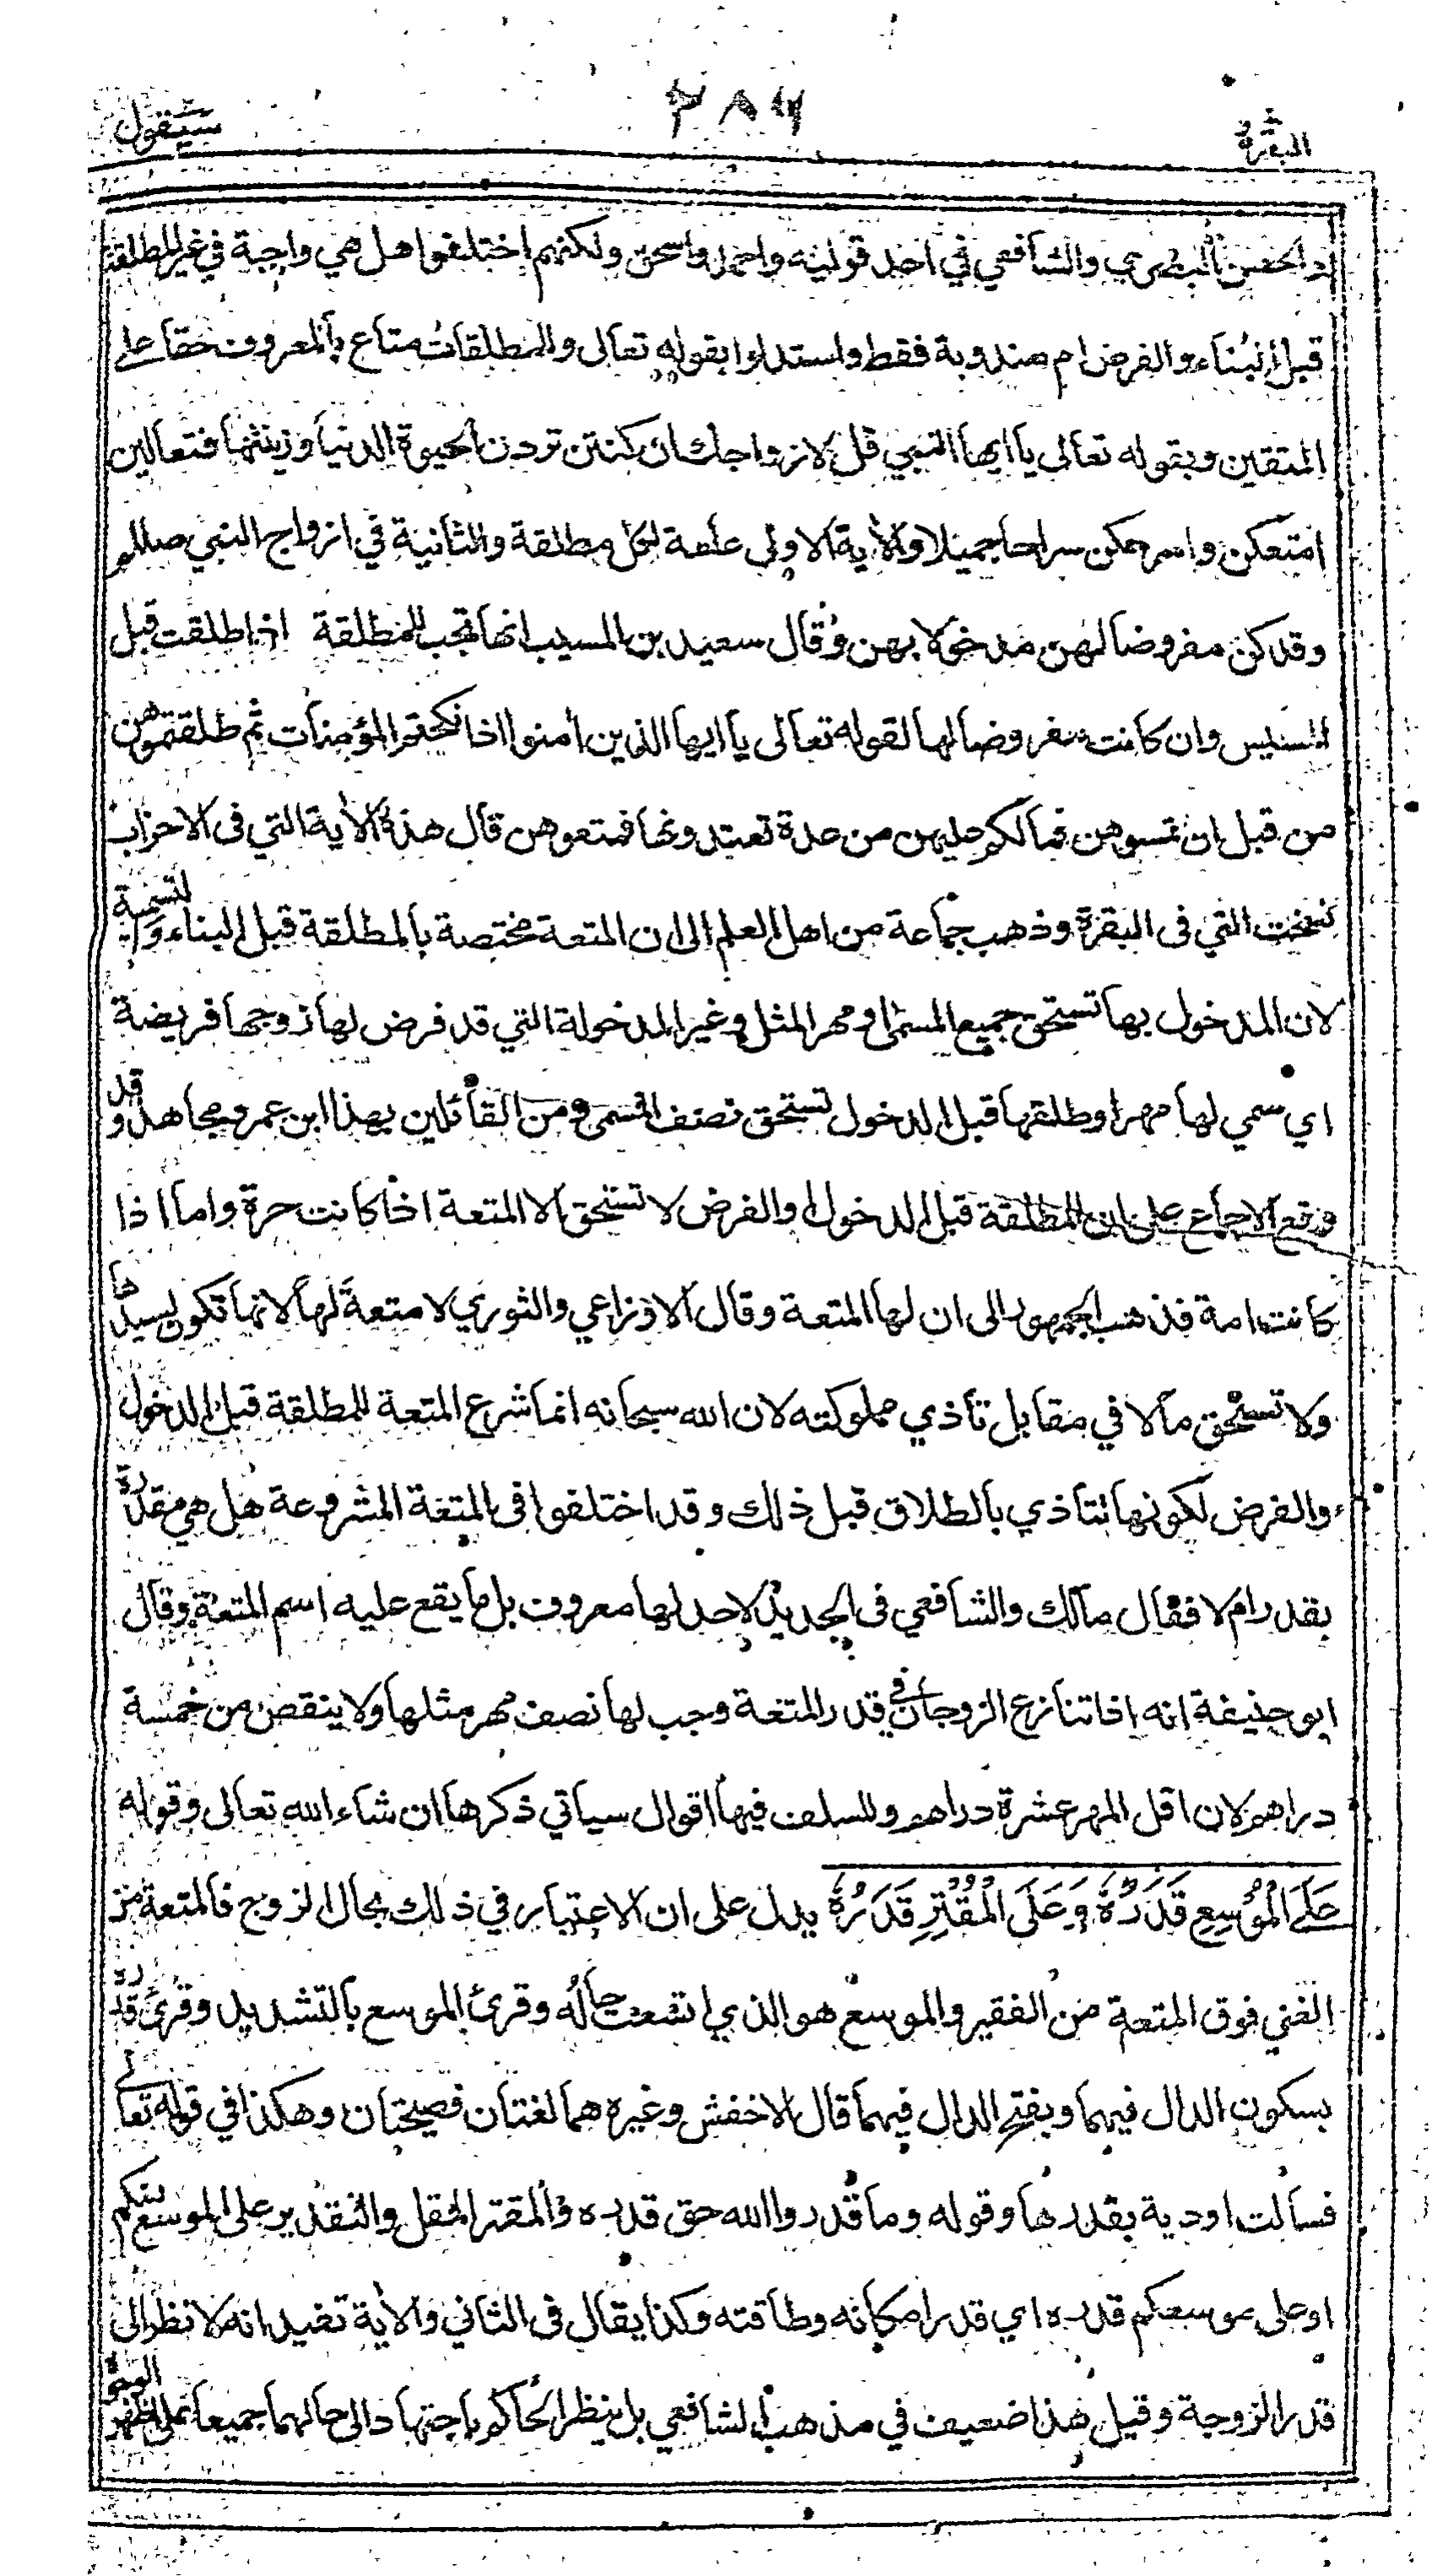 البقرة
٢٨٦
سيقول
والحسن البصري والشافعي في احد قوليه واحمد واسحق ولكنهم اختلفوا هل هي واجبة في غير المطلقة
قبل البناء والفرض ام مندوبة فقط واستدلوا بقوله تعالى والمطلقات متاع بالمعروف حقا على
المتقين وبقوله تعالى يا ايها النبي قل لازواجك ان كنتن تردن الحيوة الدنيا وزينتها فتعالين
امتعكن واسرحكن سراحا جميلا والأية الاولى عامة لكل مطلقة والثانية في ازواج النبي صللم
وقد كن مفروضا لهن مدخولا بهن وقال سعيد بن المسيب انها تجب للمطلقة اذا طلقت قبل
المسيس وان كانت مفروضا لها لقوله تعالى يا ايها الذين أمنوا اذا نكحتم المؤمنات ثم طلقتموهن
من قبل ان تمسوهن فما لكم عليهن من عدة تعتدونها فمتعوهن قال هذه الأية التي فى الاحزاب
نسخت التي فى البقرة وذهب جماعة من اهل العلم الى ان المتعة مختصة بالمطلقة قبل البناء والتسمية
لان المدخول بها تستحق جميع المسمى او مهر المثل وغير المدخولة التي قد فرض لها زوجها فريضة
اي سمي لها مهرا وطلقها قبل الدخول تستحق نصف المسمى ومن القائلين بهذا ابن عمر ومجاهد وقد
وقع الاجماع على ان المطلقة قبل الدخول والفرض لا تستحق الا المتعة اذا كانت حرة واما اذا
كانت امة فذهب الجمهور الى ان لها المتعة وقال الاوزاعي والثوري لا متعة لها لانها تكون لسيدها
ولا تستحق مالا في مقابل تأذي مملوكته لان الله سبحانه انما شرع المتعة للمطلقة قبل الدخول
والفرض لكونها تتأذي بالطلاق قبل ذلك وقد اختلفوا فى المتعة المشروعة هل هي مقدرة
بقدر ام لا فقال مالك والشافعي فى الجديد لا حد لها معروف بل ما يقع عليه اسم المتعة وقال
ابو حنيفة انه اذا تنازع الزوجان في قدر المتعة وجب لها نصف مهر مثلها ولا ينقص من خمسة
دراهم لان اقل المهر عشرة دراهم وللسلف فيها اقوال سيأتي ذكرها ان شاء الله تعالى وقوله
عَلَى الْمُوْسِعِ قَدَرُهٗ وَعَلَى الْمُقْتِرِ قَدَرُهٗ يدل على ان الاعتبار في ذلك بحال الزوج فالمتعة من
الغني فوق المتعة من الفقير والموسع هو الذي اتسعت حاله وقرئ الموسع بالتشديد وقرئ قدره
بسكون الدال فيهما وبفتح الدال فيهما قال الاخفش وغيره هما لغتان فصيحتان وهكذا في قوله تعالى
فسالت اودية بقدرها وقوله وما قدروا الله حق قدره والمقتر المقل والتقدير على الموسع منكم
او على موسعكم قدره اي قدر امكانه وطاقته وكذا يقال فى الثاني والأية تفيد انه لا نظر الى
قدر الزوجة وقيل هذا ضعيف في مذهب الشافعي بل ينظر الحاكم باجتهاده الى حالهما جميعا على اظهر